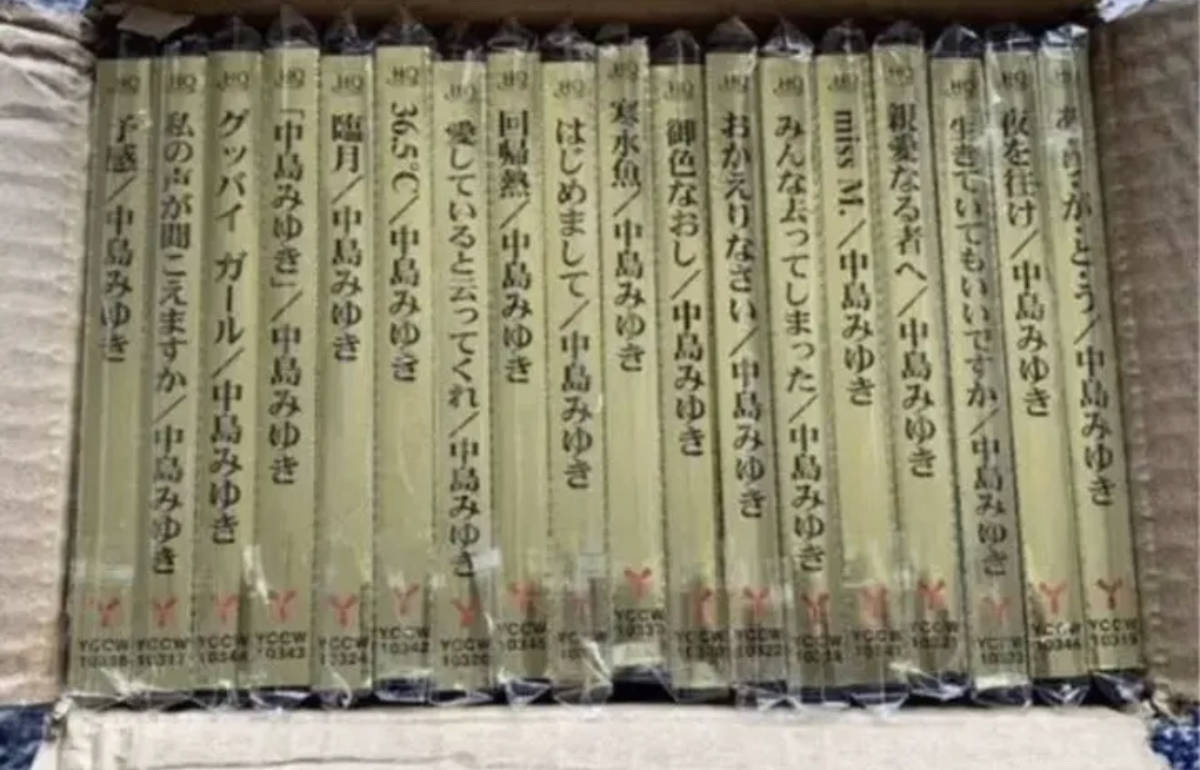 HQ
予感/中島みゆき
YCCW
HQ
私の声が聞こえますか/中島みゆき
YCCW
10317
HQ
グッバイ ガール/中島みゆき
YCCW
HQ
「中島みゆき」/中島みゆき
YCCW
10343
HQ
臨月/中島みゆき
YCCW
10324
HQ
36.5℃/中島みゆき
YCCW
10342
HQ
愛していると云ってくれ/中島みゆき
YCCW
10320
HQ
回帰熱/中島みゆき
YCCW
10345
HQ
はじめまして/中島みゆき
HQ
寒水魚/中島みゆき
YCCW
HQ
御色なおし/中島みゆき
YCCW
HQ
おかえりなさい/中島みゆき
YCCW
HQ
みんな去ってしまった/中島みゆき
YCCW
HQ
miss M./中島みゆき
YCCW
HQ
親愛なる者へ/中島みゆき
YCCW
HQ
生きていてもいいですか/中島みゆき
YCCW
10323
HQ
夜を往け/中島みゆき
YCCW
10346
HQ
あ・り・が・と・う/中島みゆき
YCCW
10319